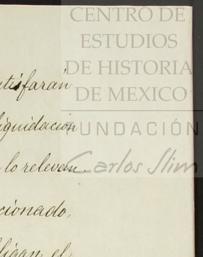 CENTRO DE
ESTUDIOS
DE HISTORIA
DE MEXICO
FUNDACIÓN
Carlos Slim
tisfarán
liquidación
lo releven
cionado,
ligan el